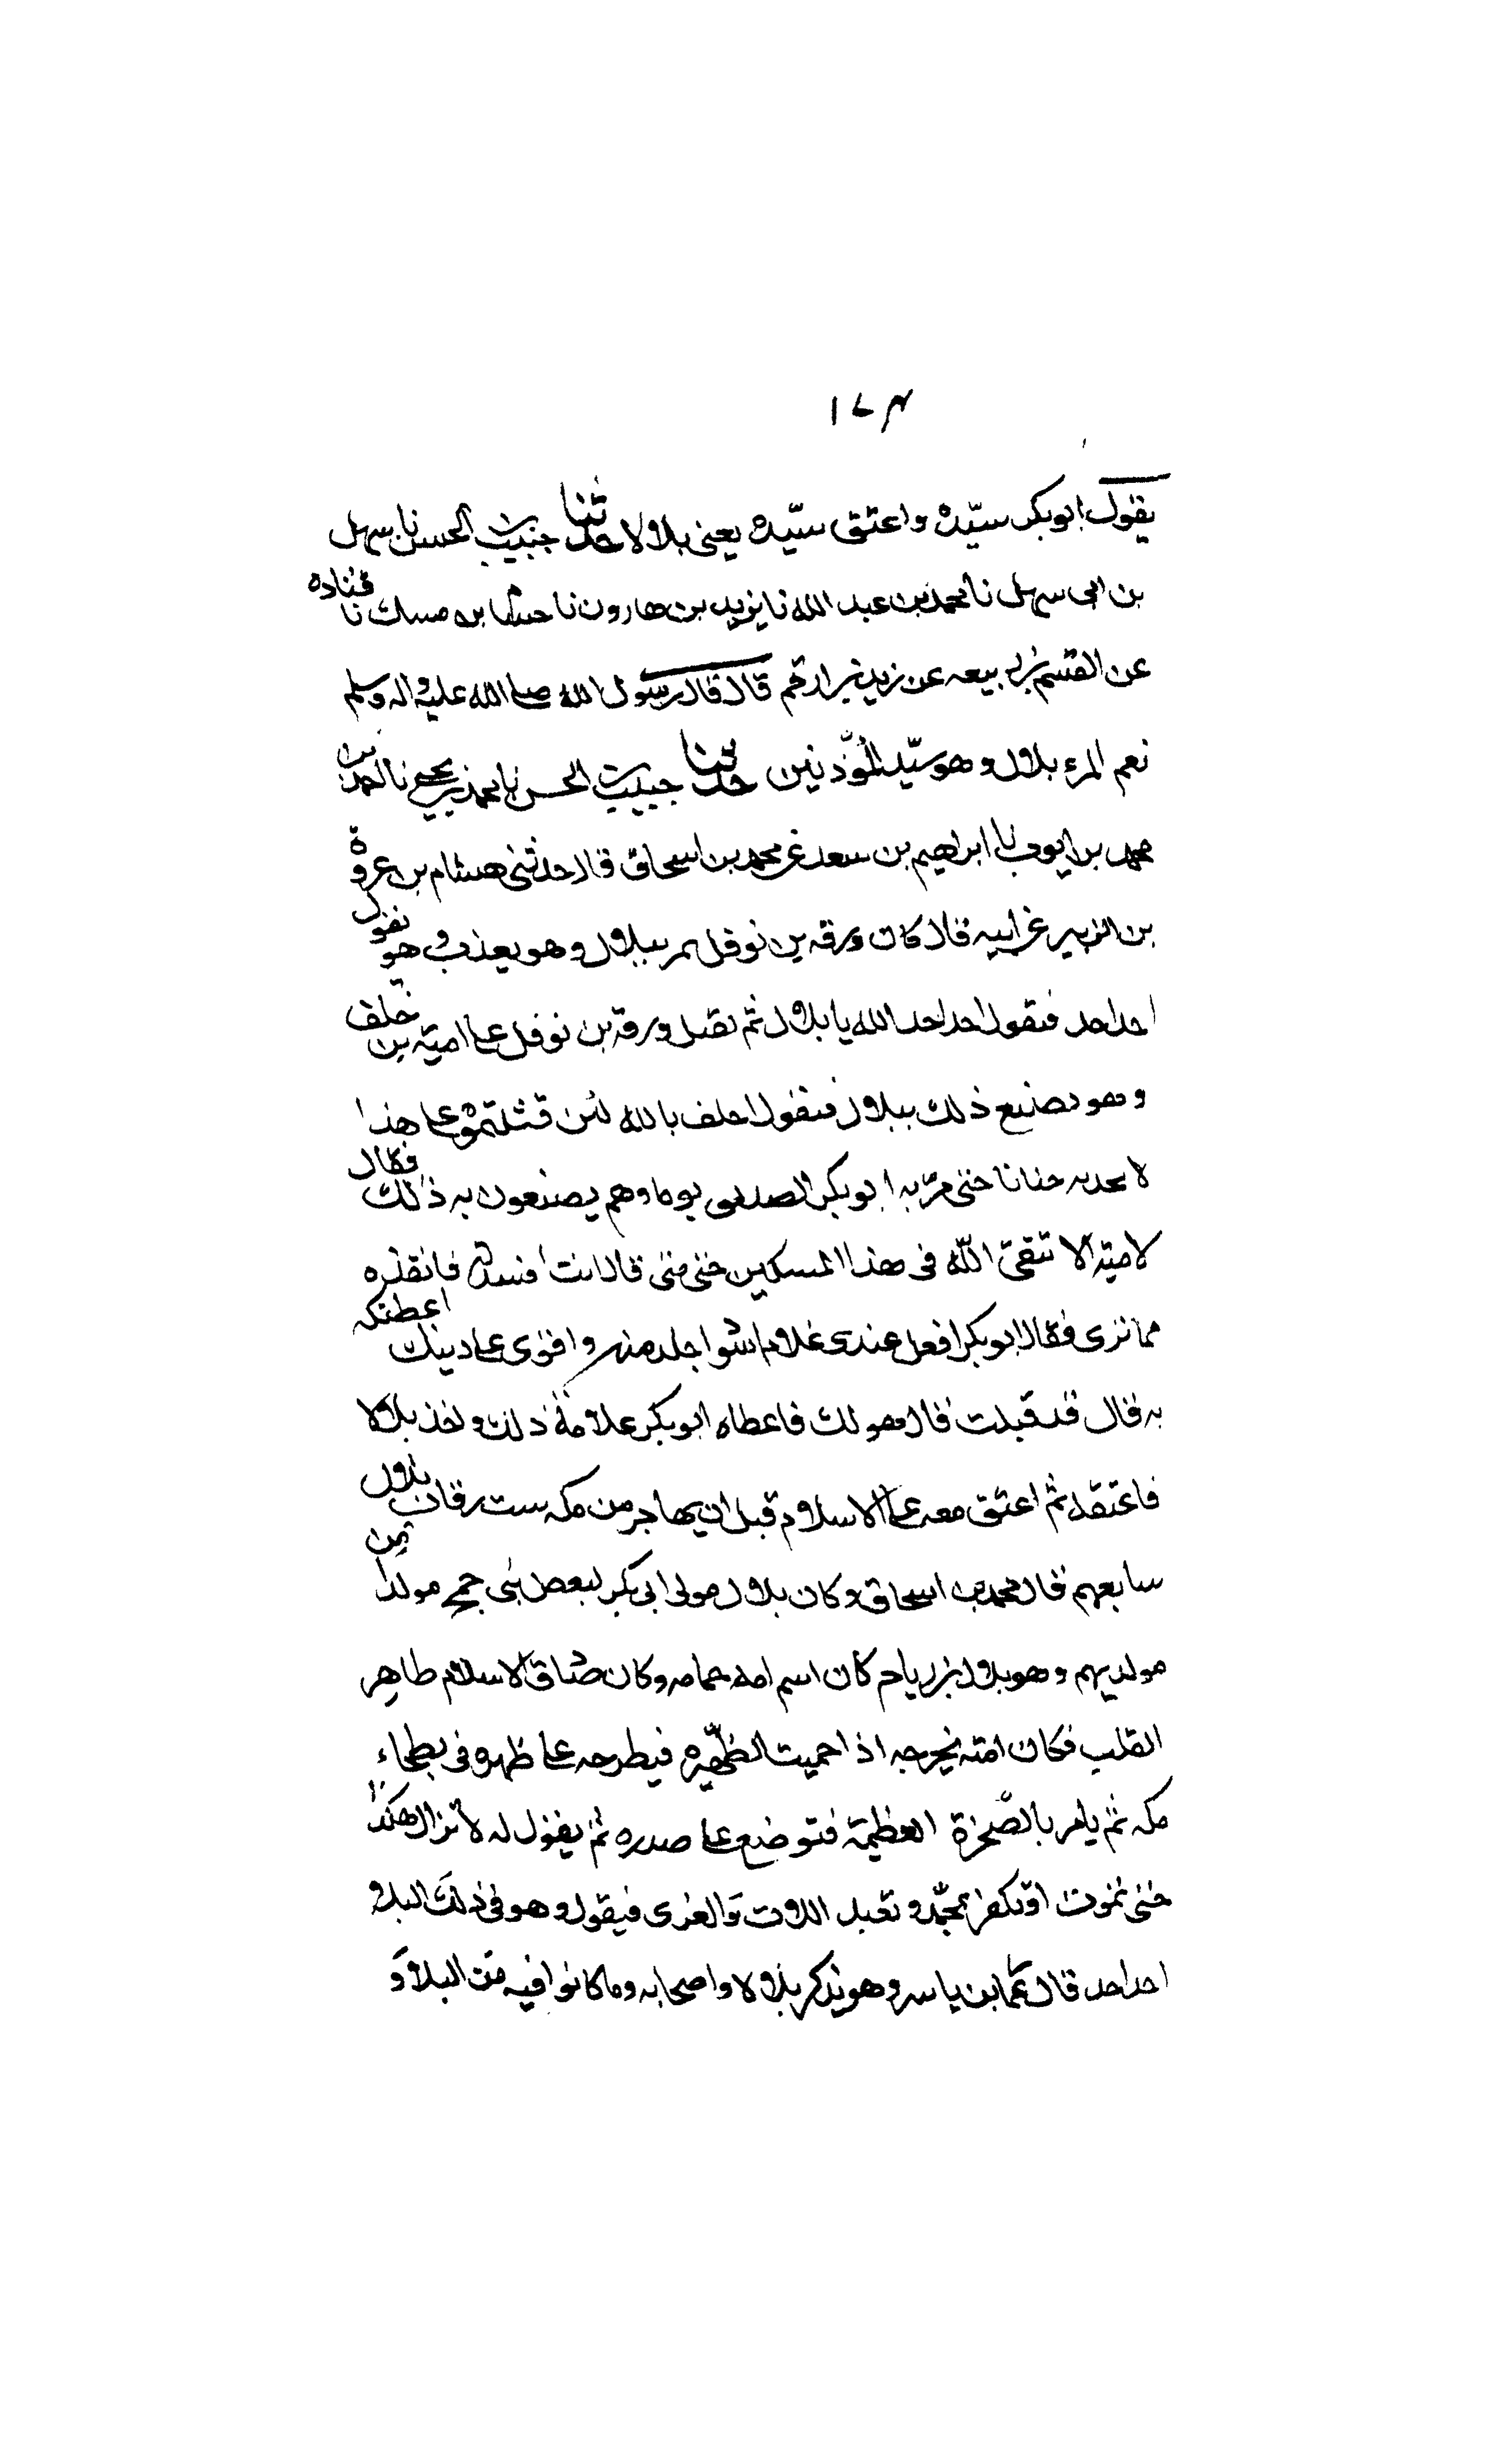 ١٧٤
يقول ابو بكر سيّدنا واعتق سيّدنا يعنى بلالا حدثنا حبيب بن الحسن نا سهل
بن ابى سهل نا محمد بن عبد الله نا يزيد بن هارون نا حسام بن مصك نا قتاده
عن القسم بن ربيعه عن زيد بن ارقم قال قال رسول الله صلى الله عليه واله وسلم
نعم المرء بلال وهو سيّد المؤذنين حدثنا حبيب بن الحسن نا محمد بن يحيى نا احمد بن
محمد بن ايوب نا ابراهيم بن سعد عن محمد بن اسحاق قال حدثنى هشام بن عروة
بن الزبير عن ابيه قال كان ورقه بن نوفل يمر ببلال وهو يعذب وهو يقول
احد احد فيقول احد احد الله يا بلال ثم يقبل ورقة بن نوفل على امية بن خلف
وهو يصنع ذلك ببلال فيقول احلف بالله لئن قتلتموه على هذا
لا تخذنه حنانا حتى مرّ به ابو بكر الصديق يوما وهم يصنعون به ذلك فقال
لامية الا تتقى اللّه فى هذا المسكين حتى متى قال انت افسدته فانقذه
مما ترى فقال ابو بكر افعل عندى غلام اسود اجلد منه واقوى على دينك اعطيكه
به قال قد قبلت قال هو لك فاعطاه ابو بكر غلامه ذلك واخذ بلالا
فاعتقه ثم اعتق معه على الاسلام قبل ان يهاجر من مكه ست رقاب بلال
سابعهم قال محمد بن اسحاق وكان بلال مولى ابى بكر لبعض بنى جمح مولدا من
مولديهم وهو بلال بن رباح كان اسم امه حمامه وكان صادق الاسلام طاهر
القلب فكان اميه يخرجه اذا حميت الظّهيره فيطرحه على ظهره فى بطحاء
مكه ثم يامر بالصّخرة العظيمة فتوضع على صدره ثم يقول له لا تزال هكذا
حتى تموت او تكفر بمحمّد وتعبد اللات والعزى فيقول وهو فى ذلك البلاء
احد احد قال عمار بن ياسر وهو يذكر بلالا واصحابه وما كانوا فيه من البلاء